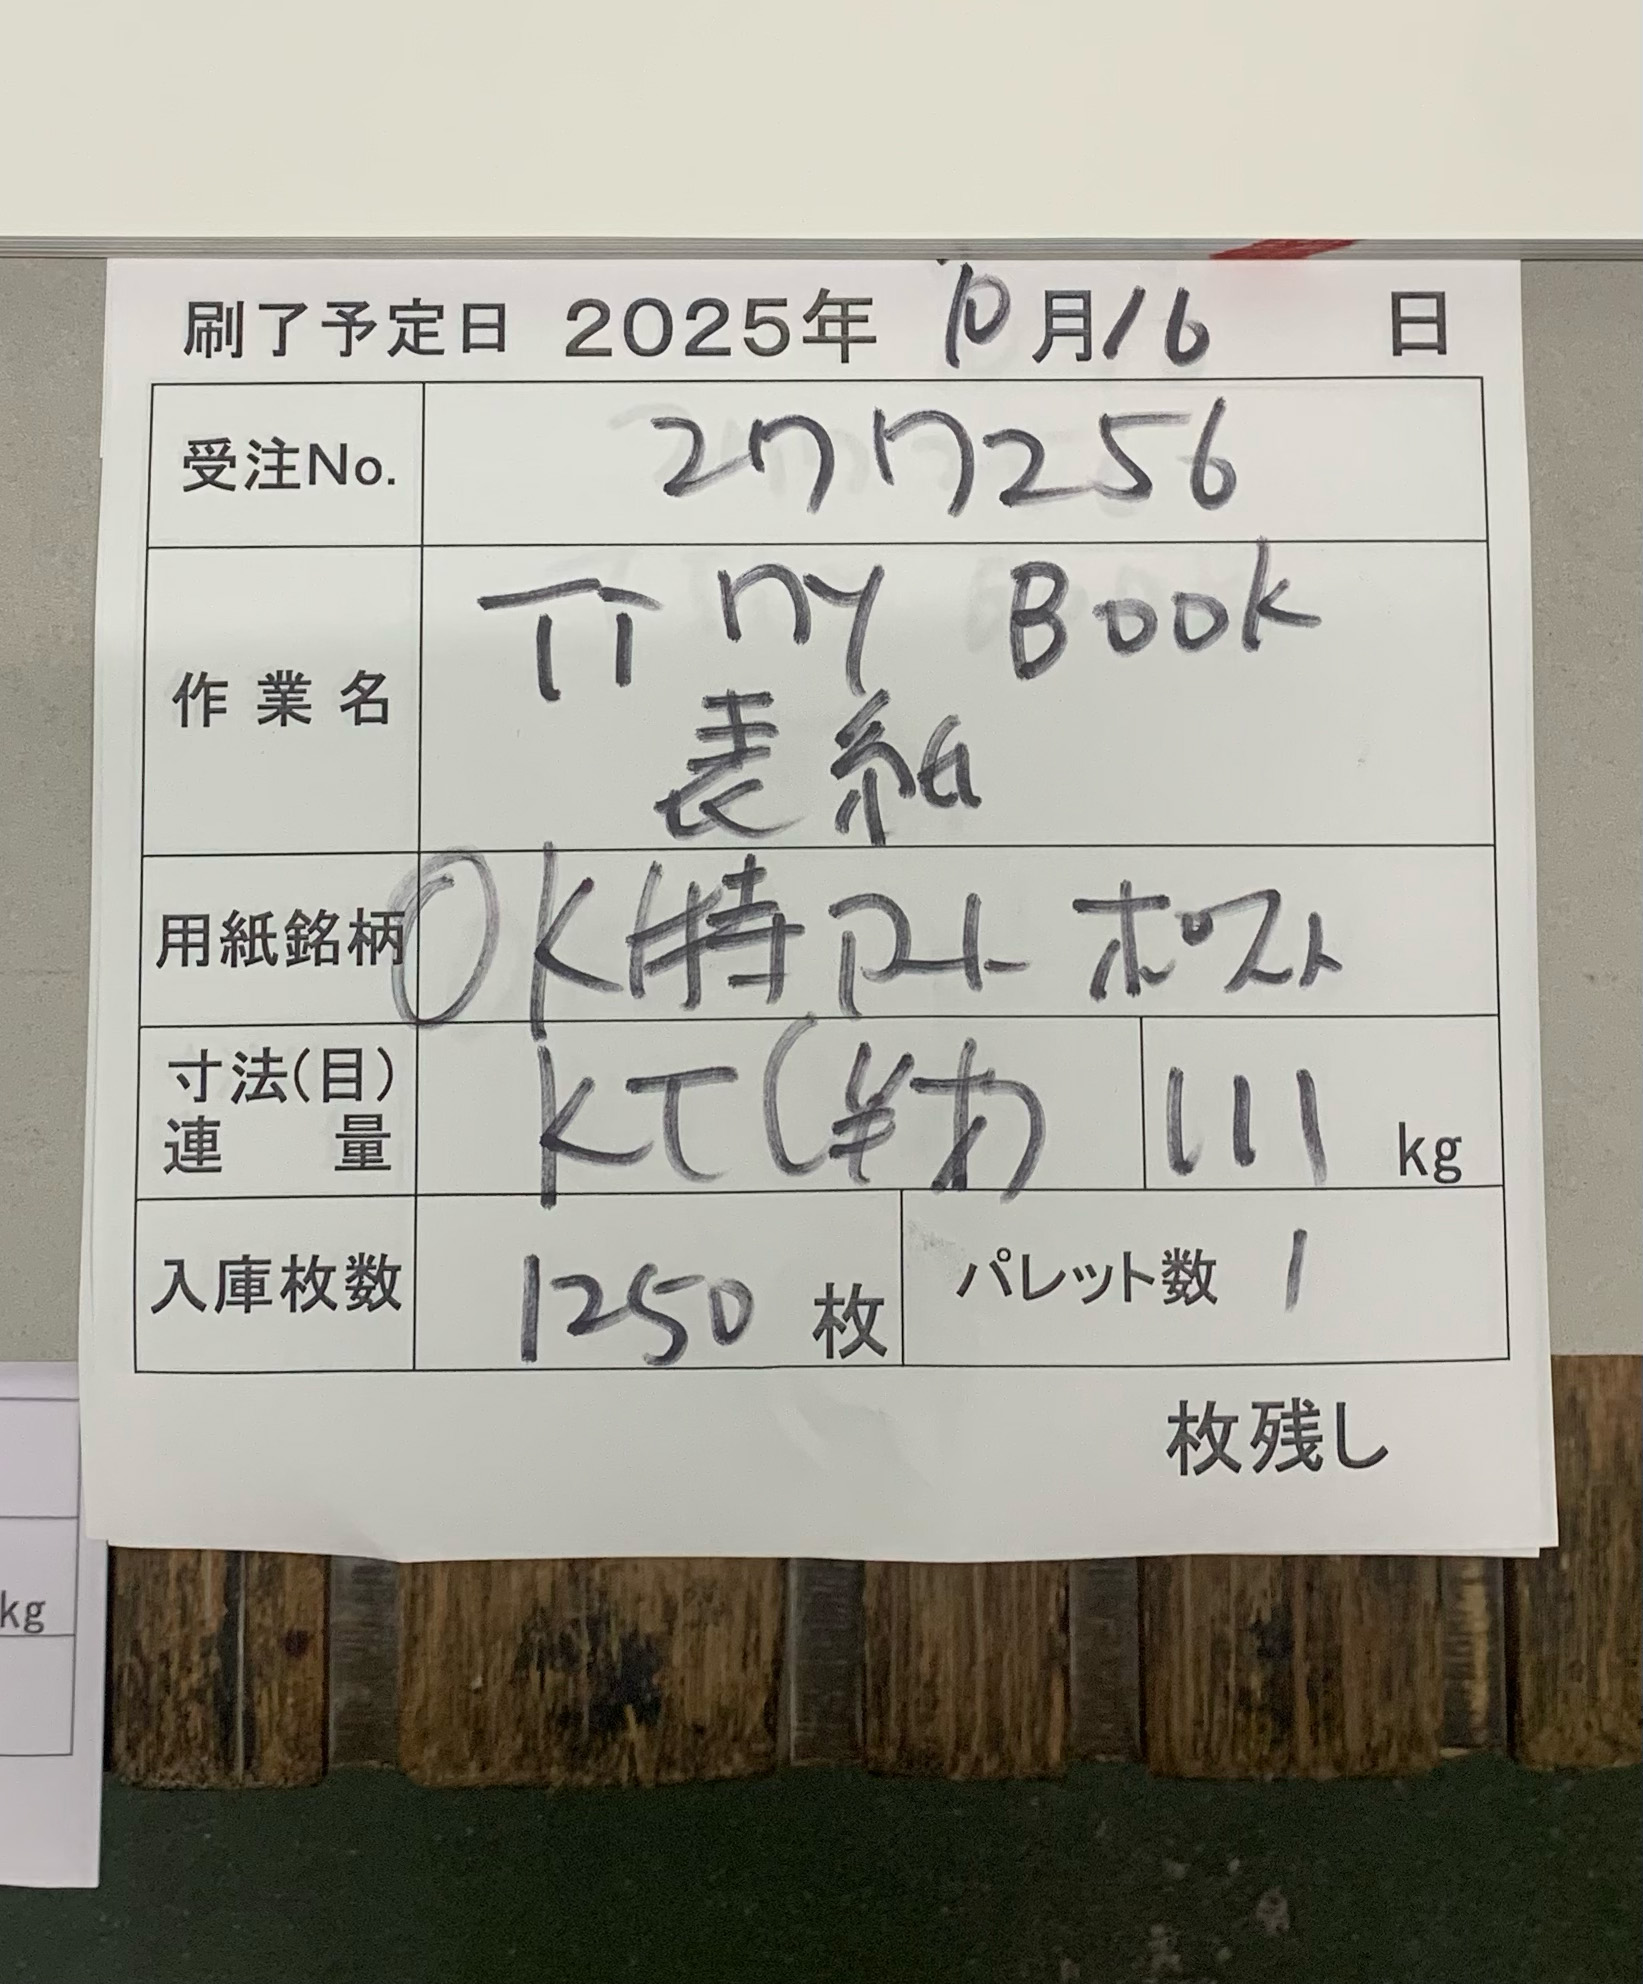 刷了予定日 2025年 10月16日
受注No. 2777256
作業名 TiNY BOOK
表紙
用紙銘柄 OK特アートポスト
寸法(目) KT(半才)
連量 111 kg
入庫枚数 1250枚 パレット数 1
枚残し
kg